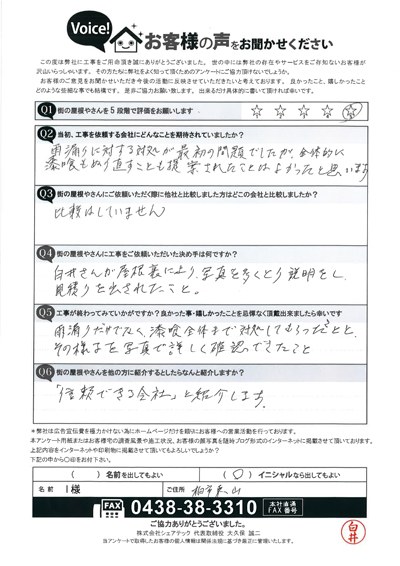 Voice!
お客様の声をお聞かせください
この度は弊社に工事をご用命頂き誠にありがとうございました。世の中には弊社の存在やサービスをご存知ないお客様が
沢山いらっしゃいます。その方たちに弊社をよく知って頂くためのアンケートにご協力頂けないでしょうか。
お客様のご意見をお聞かせいただき今後の活動に反映させていただきたいと考えております。良かったこと、嬉しかったこと
どのような些細な事でも結構です。是非ご協力お願い致します。出来るだけ具体的に書いて頂ければ幸いです。
Q1 街の屋根やさんを5段階で評価をお願いします
☆ ☆ ☆ ☆ ☆
Q2 当初、工事を依頼する会社にどんなことを期待されていましたか?
雨漏りに対する対処が最初の問題でしたが、全体的に
漆喰もぬり直すことも提案されたことはよかったと思います
Q3 街の屋根やさんにご依頼いただく際に他社と比較しました方はどこの会社と比較しましたか?
比較はしていません
Q4 街の屋根やさんに工事をご依頼いただいた決め手は何ですか?
白井さんが屋根裏に入り、写真を多くとり説明をし、
見積りを出されたこと。
Q5 工事が終わってみていかがですか?良かった事・嬉しかったことを忌憚なく頂戴出来ましたら幸いです
雨漏りだけでなく、漆喰全体まで対処してもらったことと、
その様子を写真で詳しく確認できたこと
Q6 街の屋根やさんを他の方に紹介するとしたらなんと紹介しますか?
「信頼できる会社」と紹介します。
*弊社は広告宣伝費を極力かけない為にホームページだけを頼りにお客様への営業活動を行っております。
本アンケート用紙またはお客様宅の調査風景や施工状況、お客様の顔写真を随時ブログ形式のインターネットに掲載させて頂いております。
上記内容をインターネットや印刷物に掲載させて頂いてもよろしいでしょうか?
下記の中から○をお付け下さい。
( )名前を出してもよい (○)イニシャルなら出してもよい
名前 I様 ご住所
FAX 0438-38-3310 本社直通 FAX番号
ご協力ありがとうございました。
株式会社シェアテック 代表取締役 大久保 誠二
当アンケートで取得したお客様の個人情報は関係法規に基づき厳正に管理いたします。
白井